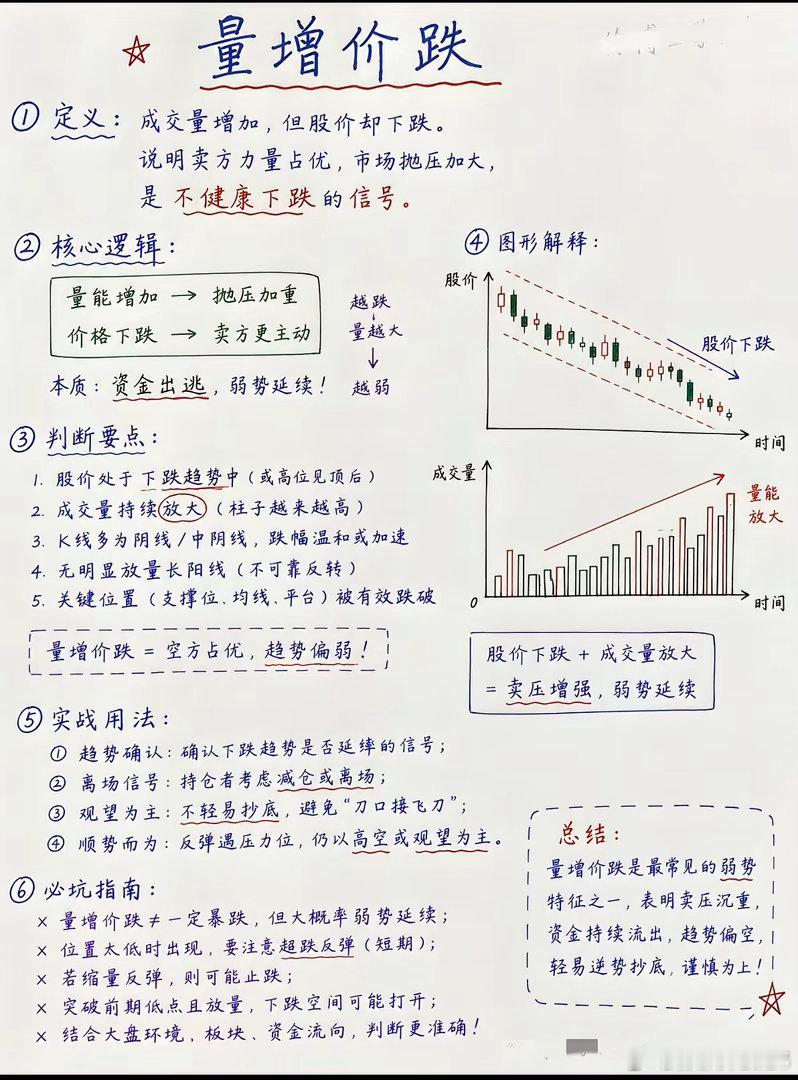 量增价跌
① 定义：成交量增加，但股价却下跌。
说明卖方力量占优，市场抛压加大，
是不健康下跌的信号。
② 核心逻辑：
量能增加 → 抛压加重
价格下跌 → 卖方更主动
越跌
量越大
越弱
本质：资金出逃，弱势延续！
③ 判断要点：
1. 股价处于下跌趋势中（或高位见顶后）
2. 成交量持续放大（柱子越来越高）
3. K线多为阴线/中阴线，跌幅温和或加速
4. 无明显放量长阳线（不可靠反转）
5. 关键位置（支撑位、均线、平台）被有效跌破
量增价跌 = 空方占优，趋势偏弱！
④ 图形解释：
股价
股价下跌
时间
成交量
量能
放大
0
时间
股价下跌 + 成交量放大
= 卖压增强，弱势延续
⑤ 实战用法：
① 趋势确认：确认下跌趋势是否延续的信号；
② 离场信号：持仓者考虑减仓或离场；
③ 观望为主：不轻易抄底，避免“刀口接飞刀”；
④ 顺势而为：反弹遇压力位，仍以高空或观望为主。
⑥ 必坑指南：
× 量增价跌≠一定暴跌，但大概率弱势延续；
× 位置太低时出现，要注意超跌反弹（短期）；
× 若缩量反弹，则可能止跌；
× 突破前期低点且放量，下跌空间可能打开；
× 结合大盘环境，板块、资金流向，判断更准确！
总结：
量增价跌是最常见的弱势
特征之一，表明卖压沉重，
资金持续流出，趋势偏空，
轻易逆势抄底，谨慎为上！